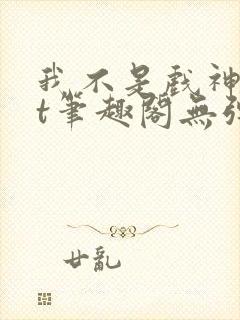 我不是戲神
t筆趣閣無弹
廿亂